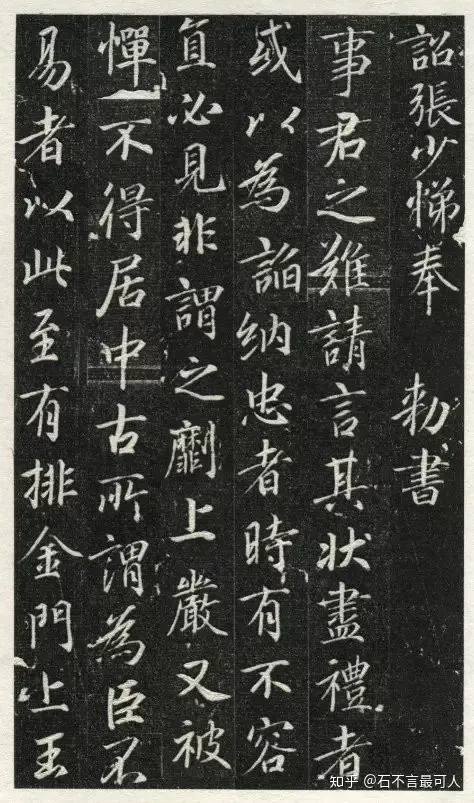 詔張少悌奉 勑書
事君之難請言其狀盡禮者
或以為諂納忠者時有不容
直必見非謂之劘上嚴又被
憚不得居中古所謂為臣不
易者以此至有排金門上玉
知乎 @石不言最可人